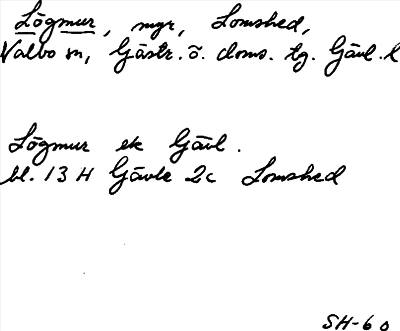 Lögmur, myr, Lomshed,
Valbo sn, Gästr. ö. doms. tg. Gävl. l
Lögmur ek Gävl.
bl. 13 H Gävle 2c Lomshed
SH-60